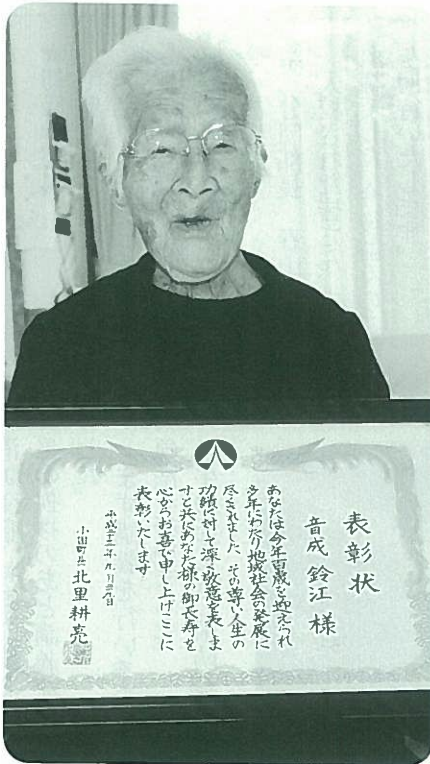 表彰状
音成 鈴江 様
あなたは今年百歳を迎えられ
多年にわたり地域社会の発展に
尽くされました その尊い人生の
功績に対して深く敬意を表しま
すと共にあなた様の御長寿を
心からお喜び申し上げここに
表彰いたします
平成二十二年九月
小国町長 北里耕亮